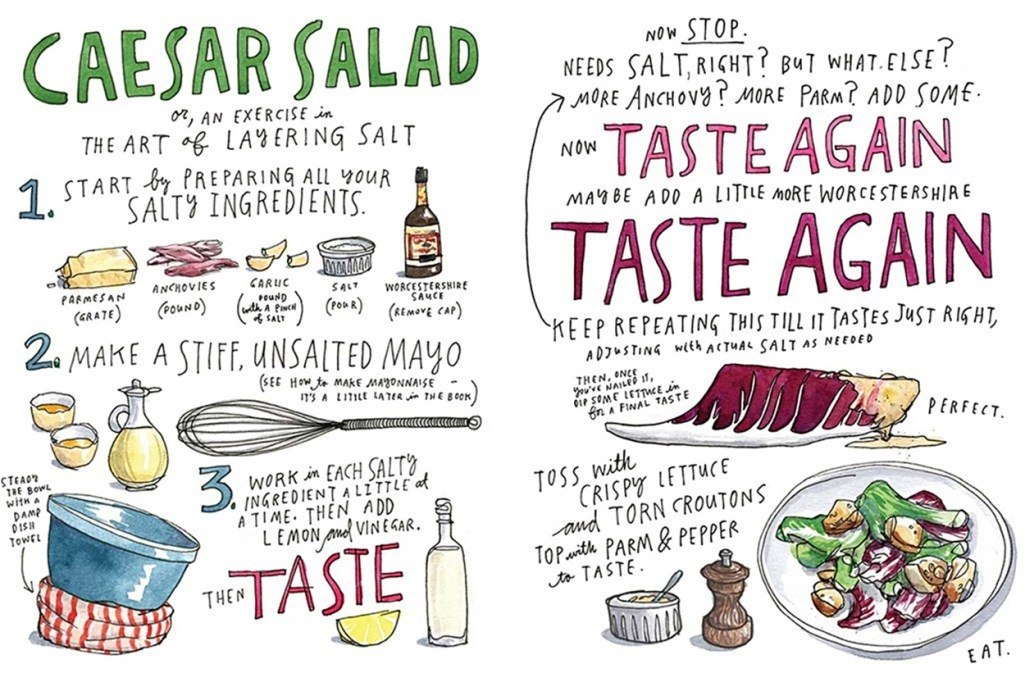 CAESAR SALAD
or, AN EXERCISE in
THE ART of LAYERING SALT
1. START by PREPARING ALL YOUR
SALTY INGREDIENTS.
PARMESAN
(GRATE)
ANCHOVIES
(POUND)
GARLIC
(POUND
with A PINCH
of SALT)
SALT
(POUR)
WORCESTERSHIRE
SAUCE
(REMOVE CAP)
2. MAKE A STIFF, UNSALTED MAYO
(SEE HOW to MAKE MAYONNAISE –
IT'S A LITTLE LATER in THE BOOK)
STEADY
THE BOWL
WITH A
DAMP
DISH
TOWEL
3. WORK in EACH SALTY
INGREDIENT A LITTLE at
A TIME. THEN ADD
LEMON and VINEGAR.
THEN TASTE
NOW STOP.
NEEDS SALT, RIGHT? BUT WHAT ELSE?
MORE ANCHOVY? MORE PARM? ADD SOME.
NOW TASTE AGAIN
MAYBE ADD A LITTLE MORE WORCESTERSHIRE
TASTE AGAIN
KEEP REPEATING THIS TILL IT TASTES JUST RIGHT,
ADJUSTING with ACTUAL SALT AS NEEDED
THEN, ONCE
YOU'VE NAILED IT,
DIP SOME LETTUCE in
for A FINAL TASTE
PERFECT.
TOSS with
CRISPY LETTUCE
and TORN CROUTONS
TOP with PARM & PEPPER
to TASTE.
EAT.